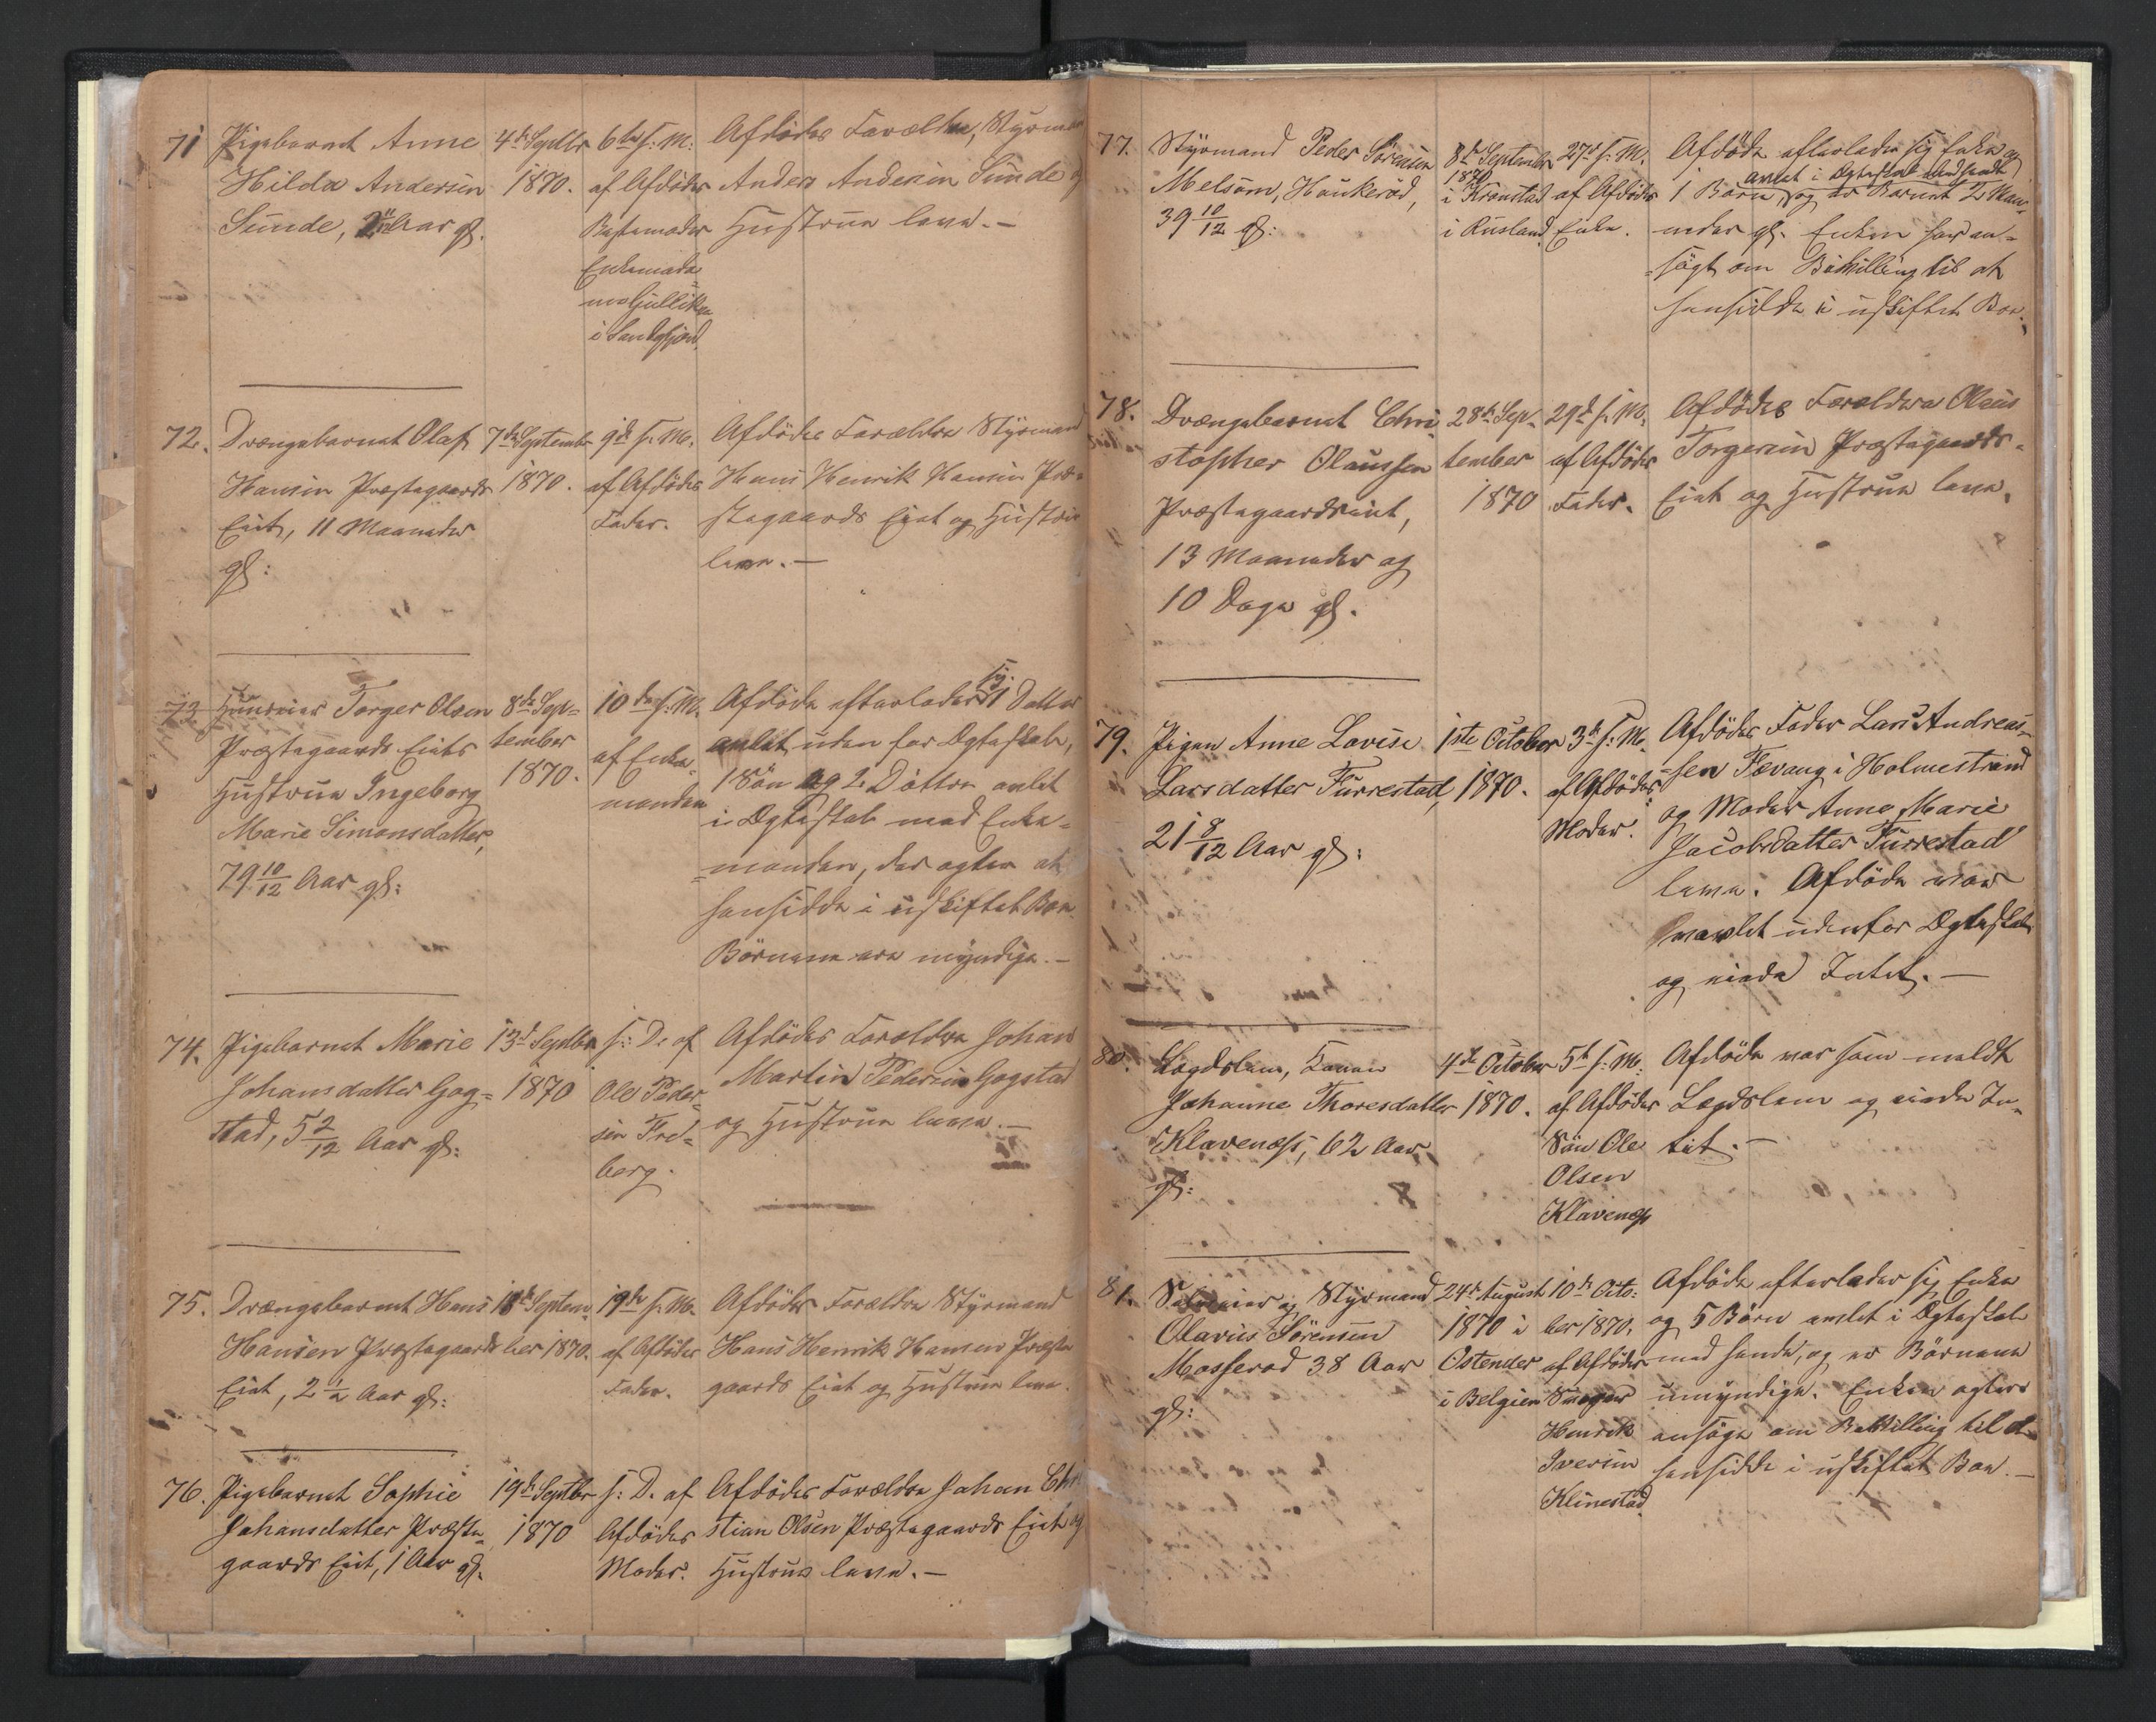 71 Pigebarnet Anne
Hilda Andersen
Sunde, Aar gl.
4de Septbr
1870.
6te s. M.
af Afdødes
Bestemoder
Enkemada-
me Gullik
i Sandefjord.
Afdødes Forældre, Styrmand
Anders Andersen Sunde og
Hustrue leve. —
72. Drængebarnet Olaf
Hansen Præstegaards
Eiet, 11 Maaneder
gl:
7de September
1870.
9de s. M.
af Afdødes
Fader.
Afdødes Forældre Styrmand
Hans Henrik Hansen Præ-
stegaards Eiet og Hustrue
leve. —
73. Huusmand Torger Olsen
Præstegaards Eiets
Hustrue Ingeborg
Marie Simonsdatter,
79 10/12 Aar gl:
8de Sep-
tember
1870.
10de s. M.
af Enke-
manden
Afdøde efterlader sig 1 Datter
avlet uden for Ægteskab,
1 Søn og 2 Døttre avlet
i Ægteskab med Enke-
manden, der agter at
hensidde i uskiftet Boe.
Børnene ere myndige. —
74. Pigebarnet Marie
Johansdatter Gog-
stad, 5 2/12 Aar gl:
13de Septbr
1870
s: D. af
Ole Peder-
sen Fred-
berg.
Afdødes Forældre Johan
Martin Pedersen Gogstad
og Hustrue leve. —
75. Drængebarnet Hans
Hansen Præstegaards
Eiet, 2 1/2 Aar gl:
18de Septem-
ber 1870.
19de s. M.
af Afdødes
Fader.
Afdødes Forældre Styrmand
Hans Henrik Hansen Præste
gaards Eiet og Hustrue leve.
76. Pigebarnet Sophie
Johansdatter Præste-
gaards Eiet, 1 Aar gl.
19de Septbr
1870
s: D. af
Afdødes
Moder.
Afdødes Forældre Johan Chri
stian Olsen Præstegaards Eiet og
Hustrue leve. —
77. Styrmand Peder Sørensen
Melsom, Haukerød,
39 10/12 gl:
8de September
1870
i Kronstad
i Rusland
27de s. M.
af Afdødes
Enke.
Afdøde efterlader sig Enke og
avlet i Ægteskab med hende
1 Barn, og er Barnet 2 Maa-
neder gl. Enken har an-
søgt om Bevilling til at
hensidde i uskiftet Boe.
78. Drængebarnet Chri-
stopher Olaussen
Præstegaardseiet,
13 Maaneder og
10 Dage gl.
28de Sep-
tember
1870
29de s. M.
af Afdødes
Fader.
Afdødes Forældre Olaus
Torgersen Præstegaards-
Eiet og Hustrue leve.
79. Pigen Anne Lovise
Larsdatter Furrestad,
21 8/12 Aar gl:
1ste October
1870.
3de s: M.
af Afdødes
Moder.
Afdødes Fader Lars Andreas-
sen Tevang i Holmestrand
og Moder Anne Marie
Jacobsdatter Furrestad
leve. Afdøde var
avlet udenfor Ægteskab
og eiede Intet. —
80. Lægdslem, Konen
Johanne Thoresdatter
Klavenæss, 62 Aar
gl:
4de October
1870.
5te s: M.
af Afdødes
Søn Ole
Olsen
Klavenæss
Afdøde var som meldt
Lægdslem og eiede In-
tet. —
81. Selveier og Styrmand
Olavus Sørensen
Mosserød 38 Aar
gl:
24de August
1870 i
Ostender
i Belgien
10de Octo-
ber 1870.
af Afdødes
Svoger
Henrik
Iversen
Klinestad
Afdøde efterlader sig Enke
og 5 Børn avlet i Ægteskab
med hende, og er Børnene
umyndige. Enken agter
ansøge om Bevilling til at
hensidde i uskiftet Boe. —